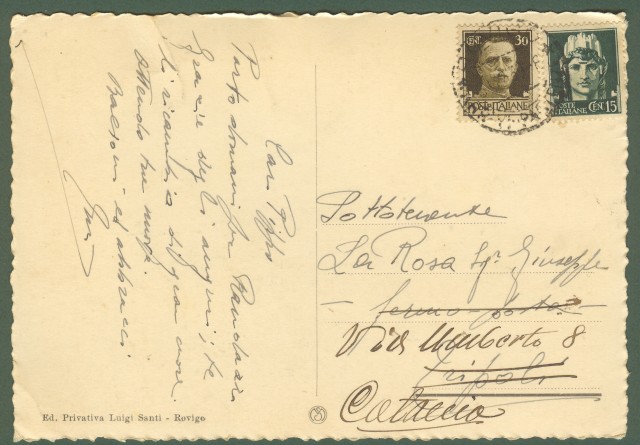 Caro Pippo
Parto domani per Randazzo
Grazie degli auguri; te
li ricambio di gran cuore.
Attendo tue nuove.
Bacioni ed abbracci
CENT. 30
POSTE ITALIANE
POSTE
ITALIANE CENT 15
Sottotenente
La Rosa Sig. Giuseppe
- fermo posta
Via Umberto 8
Tripoli
Catania
Ed. Privativa Luigi Santi - Rovigo